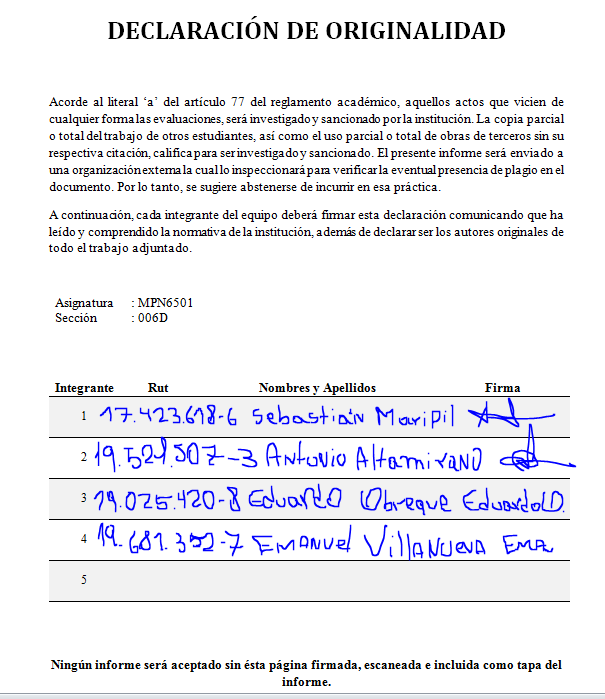 DECLARACIÓN DE ORIGINALIDAD
Acorde al literal ‘a’ del artículo 77 del reglamento académico, aquellos actos que vicien de
cualquier forma las evaluaciones, será investigado y sancionado por la institución. La copia parcial
o total del trabajo de otros estudiantes, así como el uso parcial o total de obras de terceros sin su
respectiva citación, califica para ser investigado y sancionado. El presente informe será enviado a
una organización externa la cual lo inspeccionará para verificar la eventual presencia de plagio en el
documento. Por lo tanto, se sugiere abstenerse de incurrir en esa práctica.
A continuación, cada integrante del equipo deberá firmar esta declaración comunicando que ha
leído y comprendido la normativa de la institución, además de declarar ser los autores originales de
todo el trabajo adjuntado.
Asignatura : MPN6501
Sección : 006D
Integrante Rut Nombres y Apellidos Firma
1 17.423.618-6 Sebastián Maripil
2 19.521.507-3 Antonio Altamirano
3 19.025.420-8 Eduardo Obreque Eduardo O.
4 19.681.352-7 Emanuel Villanueva Ema
5
Ningún informe será aceptado sin ésta página firmada, escaneada e incluida como tapa del
informe.